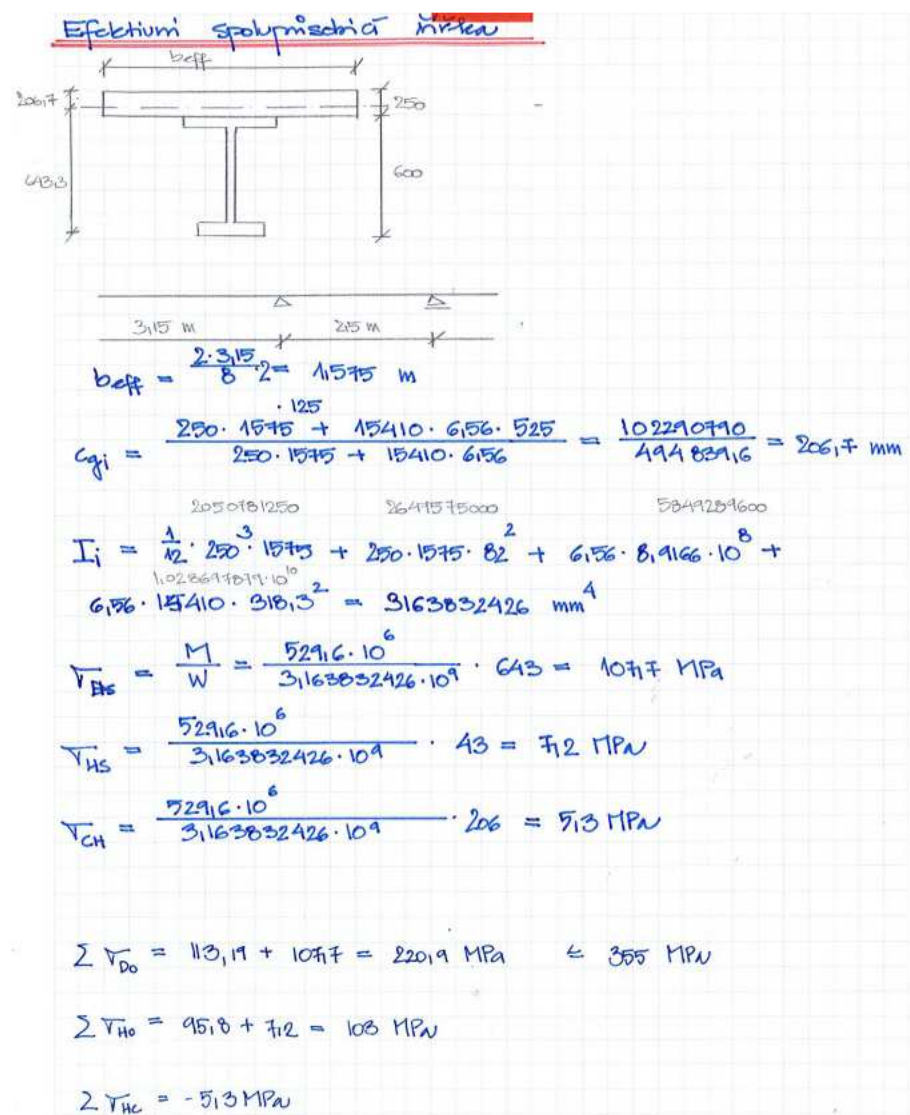 Efektivní spolupůsobící šířka
beff
206,7
250
643,3
600
3,15 m
2,5 m
beff = 2·3,15/8 ·2 = 1,575 m
· 125
cgi = (250 · 1575 + 15410 · 6,56 · 525)/(250 · 1575 + 15410 · 6,56) = 102290790/494839,6 = 206,7 mm
2050781250 2647575000 5849289600
Ii = 1/12 · 250³ · 1575 + 250 · 1575 · 82² + 6,56 · 8,9166 · 10⁸ +
1,028697879·10¹⁰
6,56 · 15410 · 318,3² = 3163832426 mm⁴
= M/W = 529,6 · 10⁶/3,163832426 · 10⁹ · 643 = 107,7 MPa
σHS = 529,6 · 10⁶/3,163832426 · 10⁹ · 43 = 7,2 MPa
σCH = 529,6 · 10⁶/3,163832426 · 10⁹ · 206 = 5,3 MPa
Σ σDo = 113,19 + 107,7 = 220,9 MPa ≤ 355 MPa
Σ σHo = 95,8 + 7,2 = 103 MPa
Σ σHc = -5,3 MPa